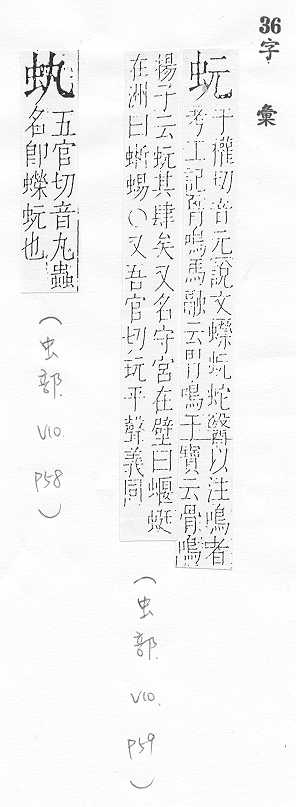 36字彙
蚖
于權切音元說文蠑蚖蛇醫以注鳴者
考工記胷鳴馬融云胃鳴于寶云骨鳴
楊子云蚖其肆矣又名守宮在壁曰蝘蜓
在洲曰蜥蜴○又吾官切玩平聲義同
(虫部. V10. P59)
五官切音丸蟲
名即蠑蚖也
(虫部. V10. P58)